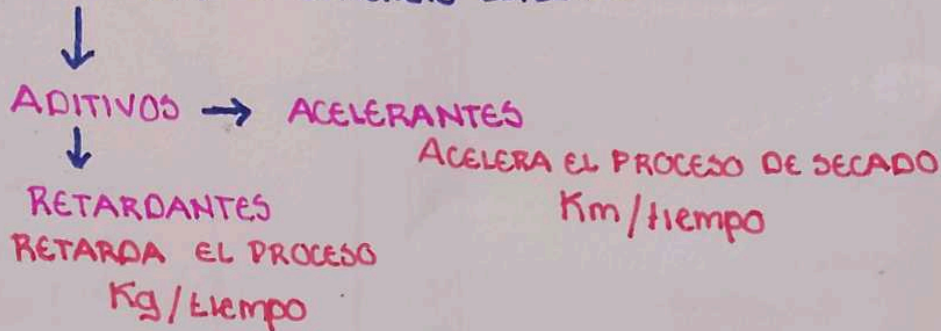 ADITIVOS → ACELERANTES
ACELERA EL PROCESO DE SECADO
Km/tiempo
RETARDANTES
RETARDA EL PROCESO
Kg/tiempo